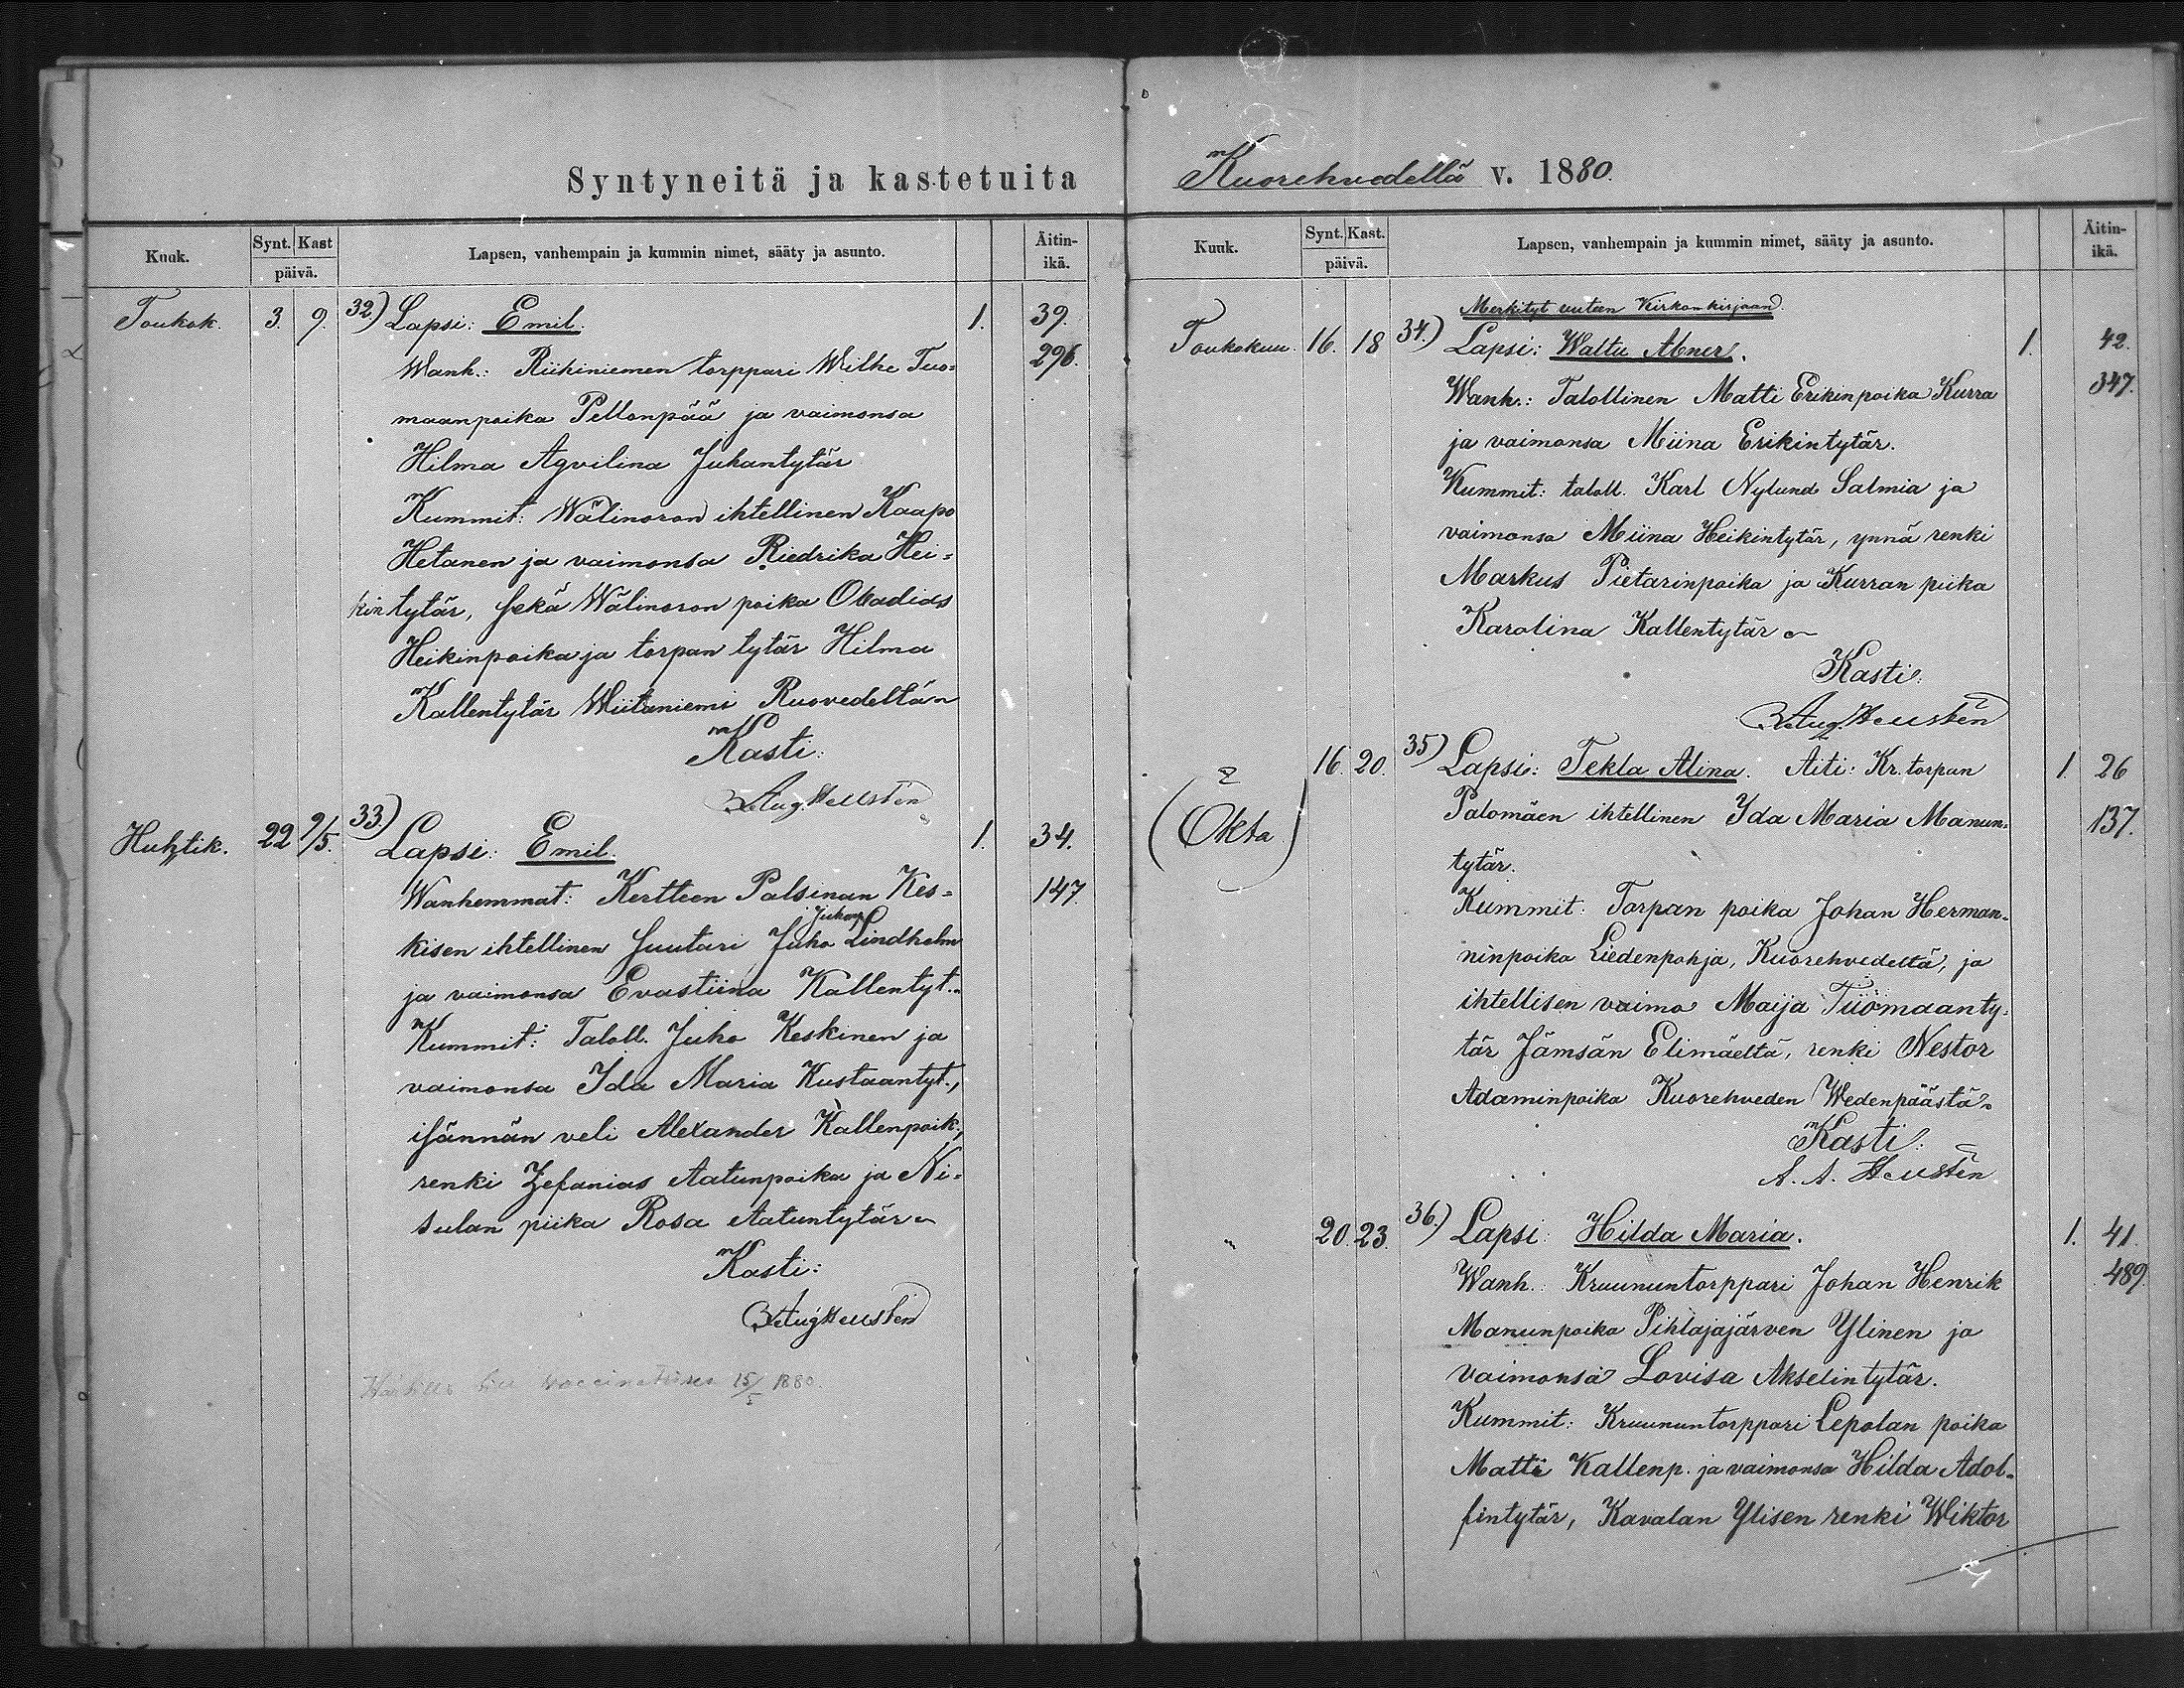 Syntyneitä ja kastetuita
Kuuk. Synt. Kast päivä. Lapsen, vanhempain ja kummin nimet, sääty ja asunto. Äitin-ikä.
Toukok. 3. 9. 32.) Lapsi: Emil. 1. 39.
Wanh.: Riihiniemen torppari Wilhe Tuo= 296.
maanpoika Pellonpää ja vaimonsa
Hilma Agvilina Juhantytär
Kummit: Wälinoron ihtellinen Kaapo
Hetanen ja vaimonsa Riedrika Hei=
kintytär, sekä Wälinoron poika Obadias
Heikinpoika ja torpan tytär Hilma
Kallentytär Wiitaniemi Ruovedeltä
Kasti:
Aug Heustén
Huhtik. 22 9/5. 33.) Lapsi: Emil. 1. 34.
Wanhemmat: Kertteen Palsinan Kes= 147
Juhanp
kisen ihtellinen suutari Juho Lindholm
ja vaimonsa Evastiina Kallentyt.
Kummit: Taloll. Juho Keskinen ja
vaimonsa Ida Maria Kustaantyt.,
isännän veli Alexander Kallenpoik.,
renki Zefanias Aatunpoika ja Ni=
sulan piika Rosa Aatuntytär
Kasti:
Aug Heustén
till 15/5 1880.
Kuorehvedellä v. 1880.
Kuuk. Synt. Kast. päivä. Lapsen, vanhempain ja kummin nimet, sääty ja asunto. Äitin-ikä.
Merkityt uuteen Kirkonkirjaan.
Toukokuu. 16. 18 34.) Lapsi: Waltu Abner. 1. 42.
Wanh.: Talollinen Matti Erikinpoika Kurra 347.
ja vaimonsa Miina Erikintytär.
Kummit: taloll. Karl Nylund Salmia ja
vaimonsa Miina Heikintytär, ynnä renki
Markus Pietarinpoika ja Kurran piika
Karolina Kallentytär
Kasti:
Aug. Heustén
16. 20. 35) Lapsi: Tekla Alina. Äiti: Kr. torpan 1. 26
(Okta) Palomäen ihtellinen Ida Maria Manun= 137.
tytär.
Kummit: Torpan poika Johan Herman=
ninpoika Liedenpohja, Kuorehvedeltä, ja
ihtellisen vaimo Maija Tuomaanty=
tär Jämsän Elimäeltä, renki Nestor
Adaminpoika Kuorehveden Wedenpäästä
Kasti:
A. A. Heustén
" 20. 23. 36.) Lapsi: Hilda Maria. 1. 41
Wanh.: Kruununtorppari Johan Henrik 489.
Manunpoika Pihlajajärven Ylinen ja
vaimonsa Lovisa Akselintytär.
Kummit: Kruununtorppari Lepolan poika
Matti Kallenp. ja vaimonsa Hilda Adol=
fintytär, Kavalan Ylisen renki Wiktor